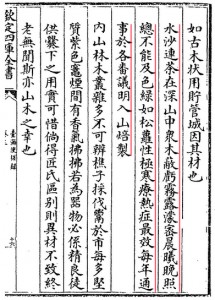 如古木狀用貯管城因其材也
水沙連茶在深山中衆木蔽虧霧露濛密晨曦晚照
總不能及色綠如松蘿性極寒療熱症最效每年通
事於各番議明入山焙製
内山林木叢雜多不可辨樵子採伐鬻於市每多堅
質紫色竈煙間有香氣拂拂若為器物必係精良徒
供爨下之用實可惜倘得匠氏區别則異材不致終
老無聞斯亦山木之幸也
欽定四庫全書
臺海使槎錄